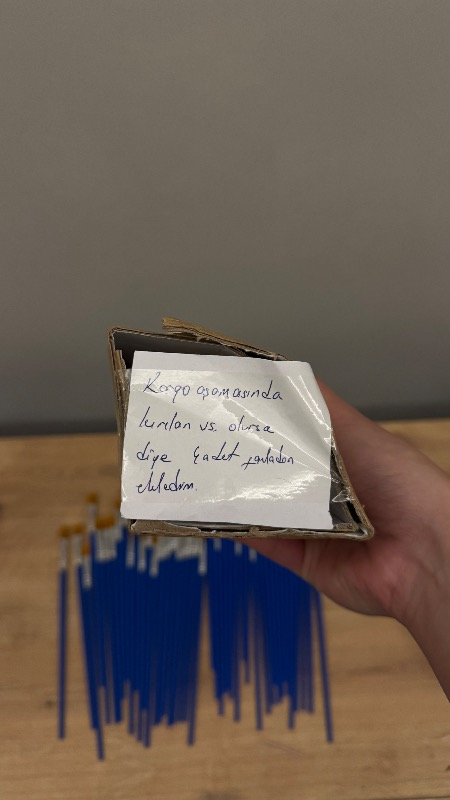 Kargo aşamasında
kırılan vs. olursa
diye 4 adet fazladan
ekledim.